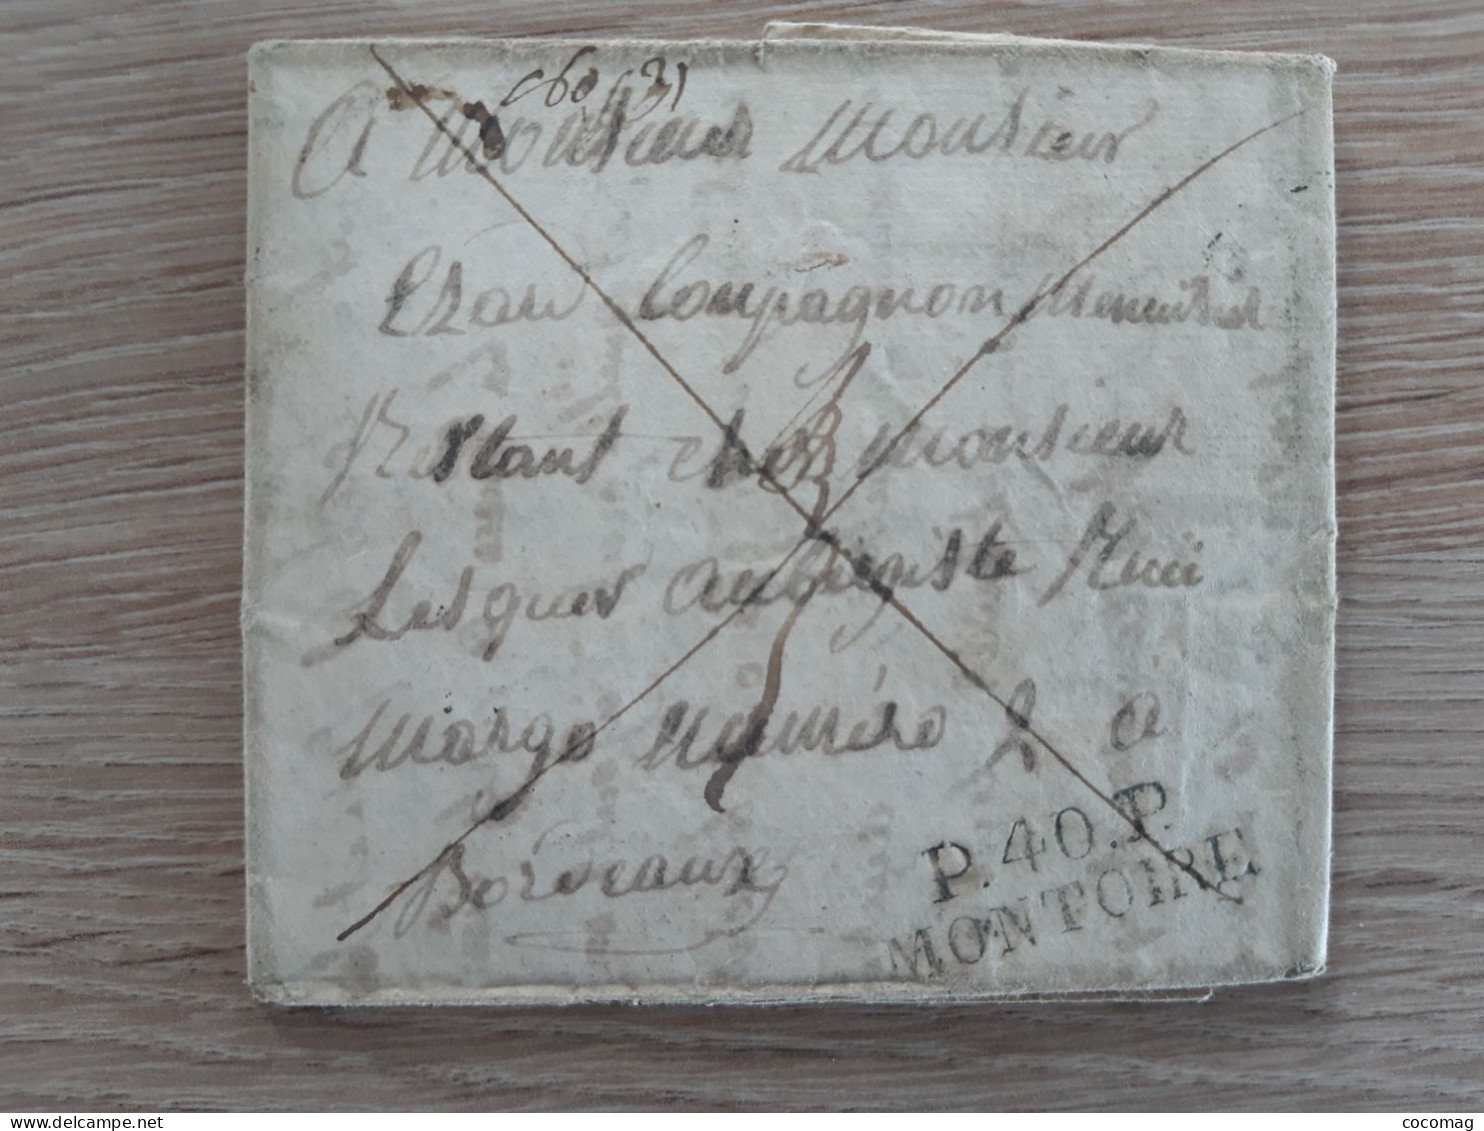 A Monsieur Monsieur
Compagnon Menuisier
Restant chez monsieur
Lesquer aubergiste Ruü
Margo Numéro 2 a
Bordeaux
P.40.P.
MONTOIRE
cocomag